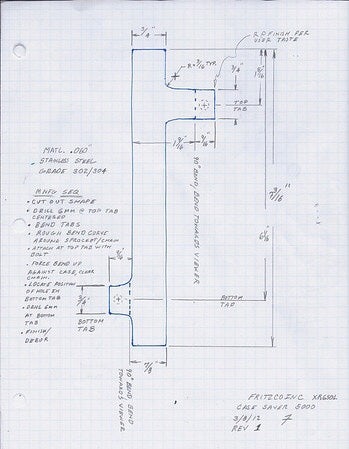 3/4"
R P FINISH PER
USER TASTE
R=3/16 TYP.
3/4"
TOP
TAB
90° BEND, BEND TOWARDS VIEWER
MATL. .060"
STAINLESS STEEL
GRADE 302/304
MNFG SEQ
• CUT OUT SHAPE
• DRILL 6MM @ TOP TAB
CENTERED
• BEND TABS
• ROUGH BEND CURVE
AROUND SPROCKET/CHAIN
• ATTACH AT TOP TAB WITH
BOLT
• FORCE BEND UP
AGAINST CASE, CLEAR
CHAIN.
• LOCATE POSITION
OF HOLE IN
BOTTOM TAB
• DRILL 6MM
AT BOTTOM
TAB
• FINISH/
DEBUR
3/4"
BOTTOM
TAB
BOTTOM
TAB
7/8"
90° BEND, BEND
TOWARDS VIEWER
FRITZCOINC XR650L
CASE SAVER 5000
3/8/12
REV 1